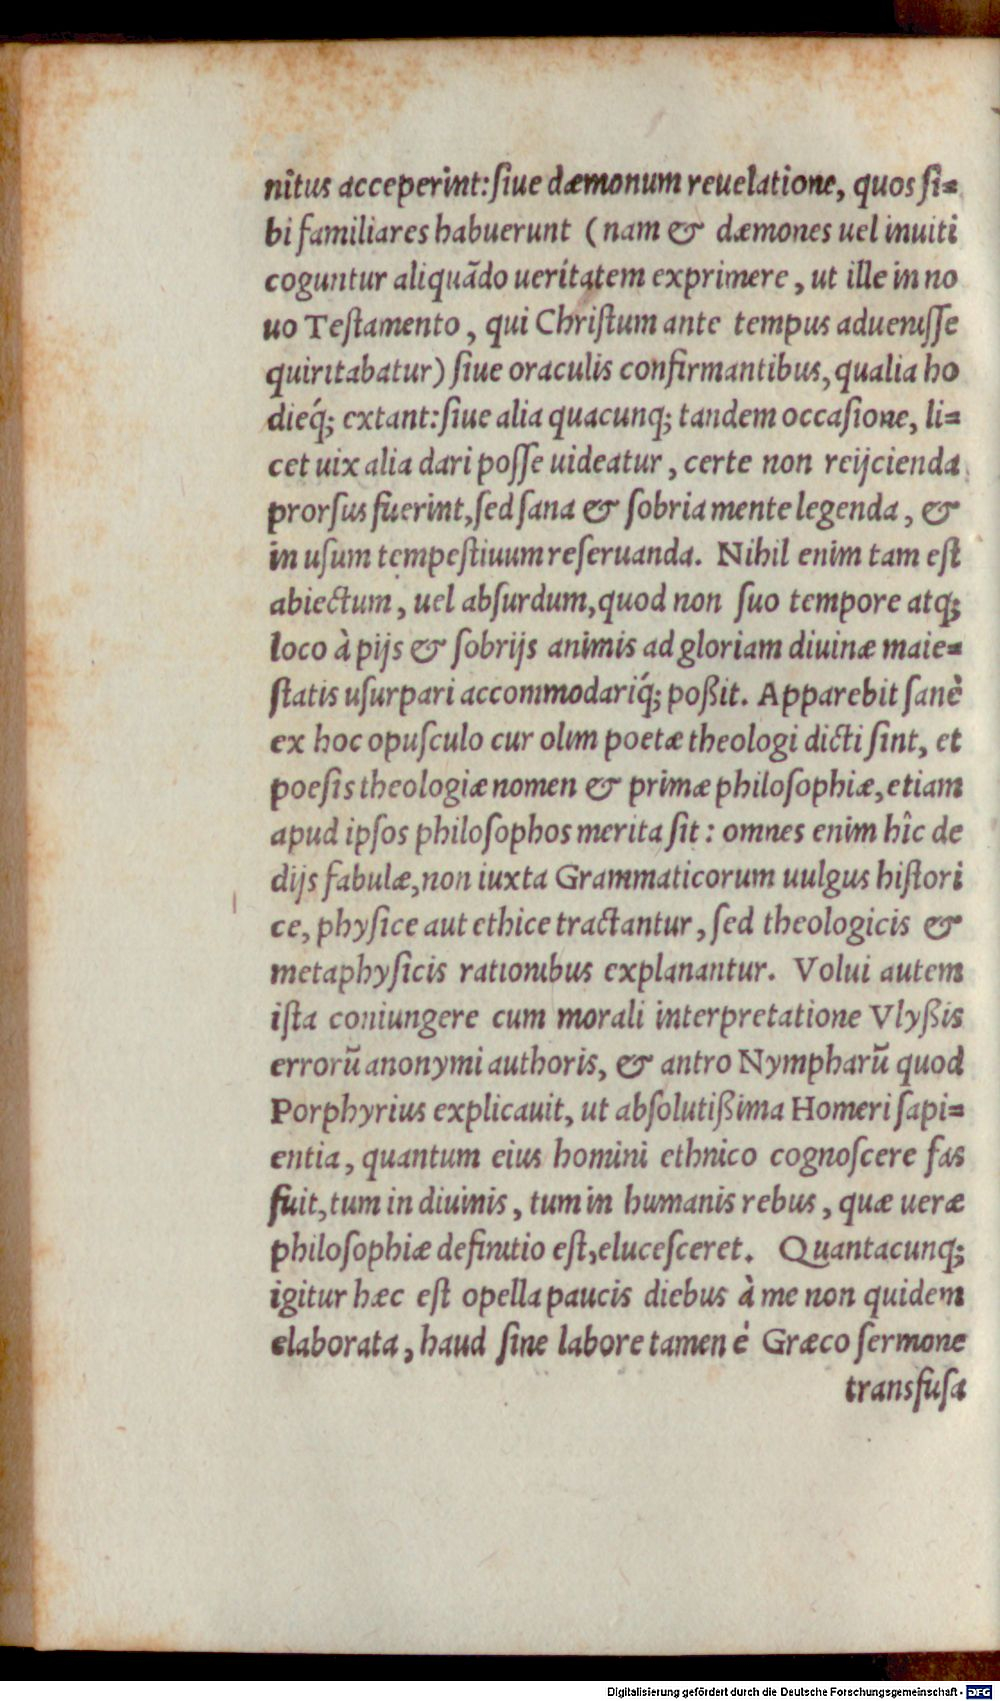 nitus acceperint: ſiue dæmonum reuelatione, quos ſi-
bi familiares habuerunt (nam & dæmones uel inuiti
coguntur aliquãdo ueritatem exprimere, ut ille in no
uo Teſtamento, qui Chriſtum ante tempus adueniſſe
quiritabatur) ſiue oraculis confirmantibus, qualia ho
dieq́; extant: ſiue alia quacunq; tandem occaſione, li-
cet uix alia dari poſſe uideatur, certe non reijcienda
prorſus fuerint, ſed ſana & ſobria mente legenda, &
in uſum tempeſtiuum reſeruanda. Nihil enim tam eſt
abiectum, uel abſurdum, quod non ſuo tempore atq;
loco à pijs & ſobrijs animis ad gloriam diuinæ maie-
ſtatis uſurpari accommodariq́; poßit. Apparebit ſanè
ex hoc opuſculo cur olim poetæ theologi dicti ſint, et
poeſis theologiæ nomen & primæ philoſophiæ, etiam
apud ipſos philoſophos merita ſit: omnes enim hîc de
dijs fabulæ, non iuxta Grammaticorum uulgus hiſtori
ce, phyſice aut ethice tractantur, ſed theologicis &
metaphyſicis rationibus explanantur. Volui autem
iſta coniungere cum morali interpretatione Vlyßis
errorũ anonymi authoris, & antro Nympharũ quod
Porphyrius explicauit, ut abſolutißima Homeri ſapi-
entia, quantum eius homini ethnico cognoſcere fas
fuit, tum in diuinis, tum in humanis rebus, quæ ueræ
philoſophiæ definitio eſt, eluceſceret. Quantacunq;
igitur hæc eſt opella paucis diebus à me non quidem
elaborata, haud ſine labore tamen è Græco ſermone
transfuſa
Digitalisierung gefördert durch die Deutsche Forschungsgemeinschaft - DFG